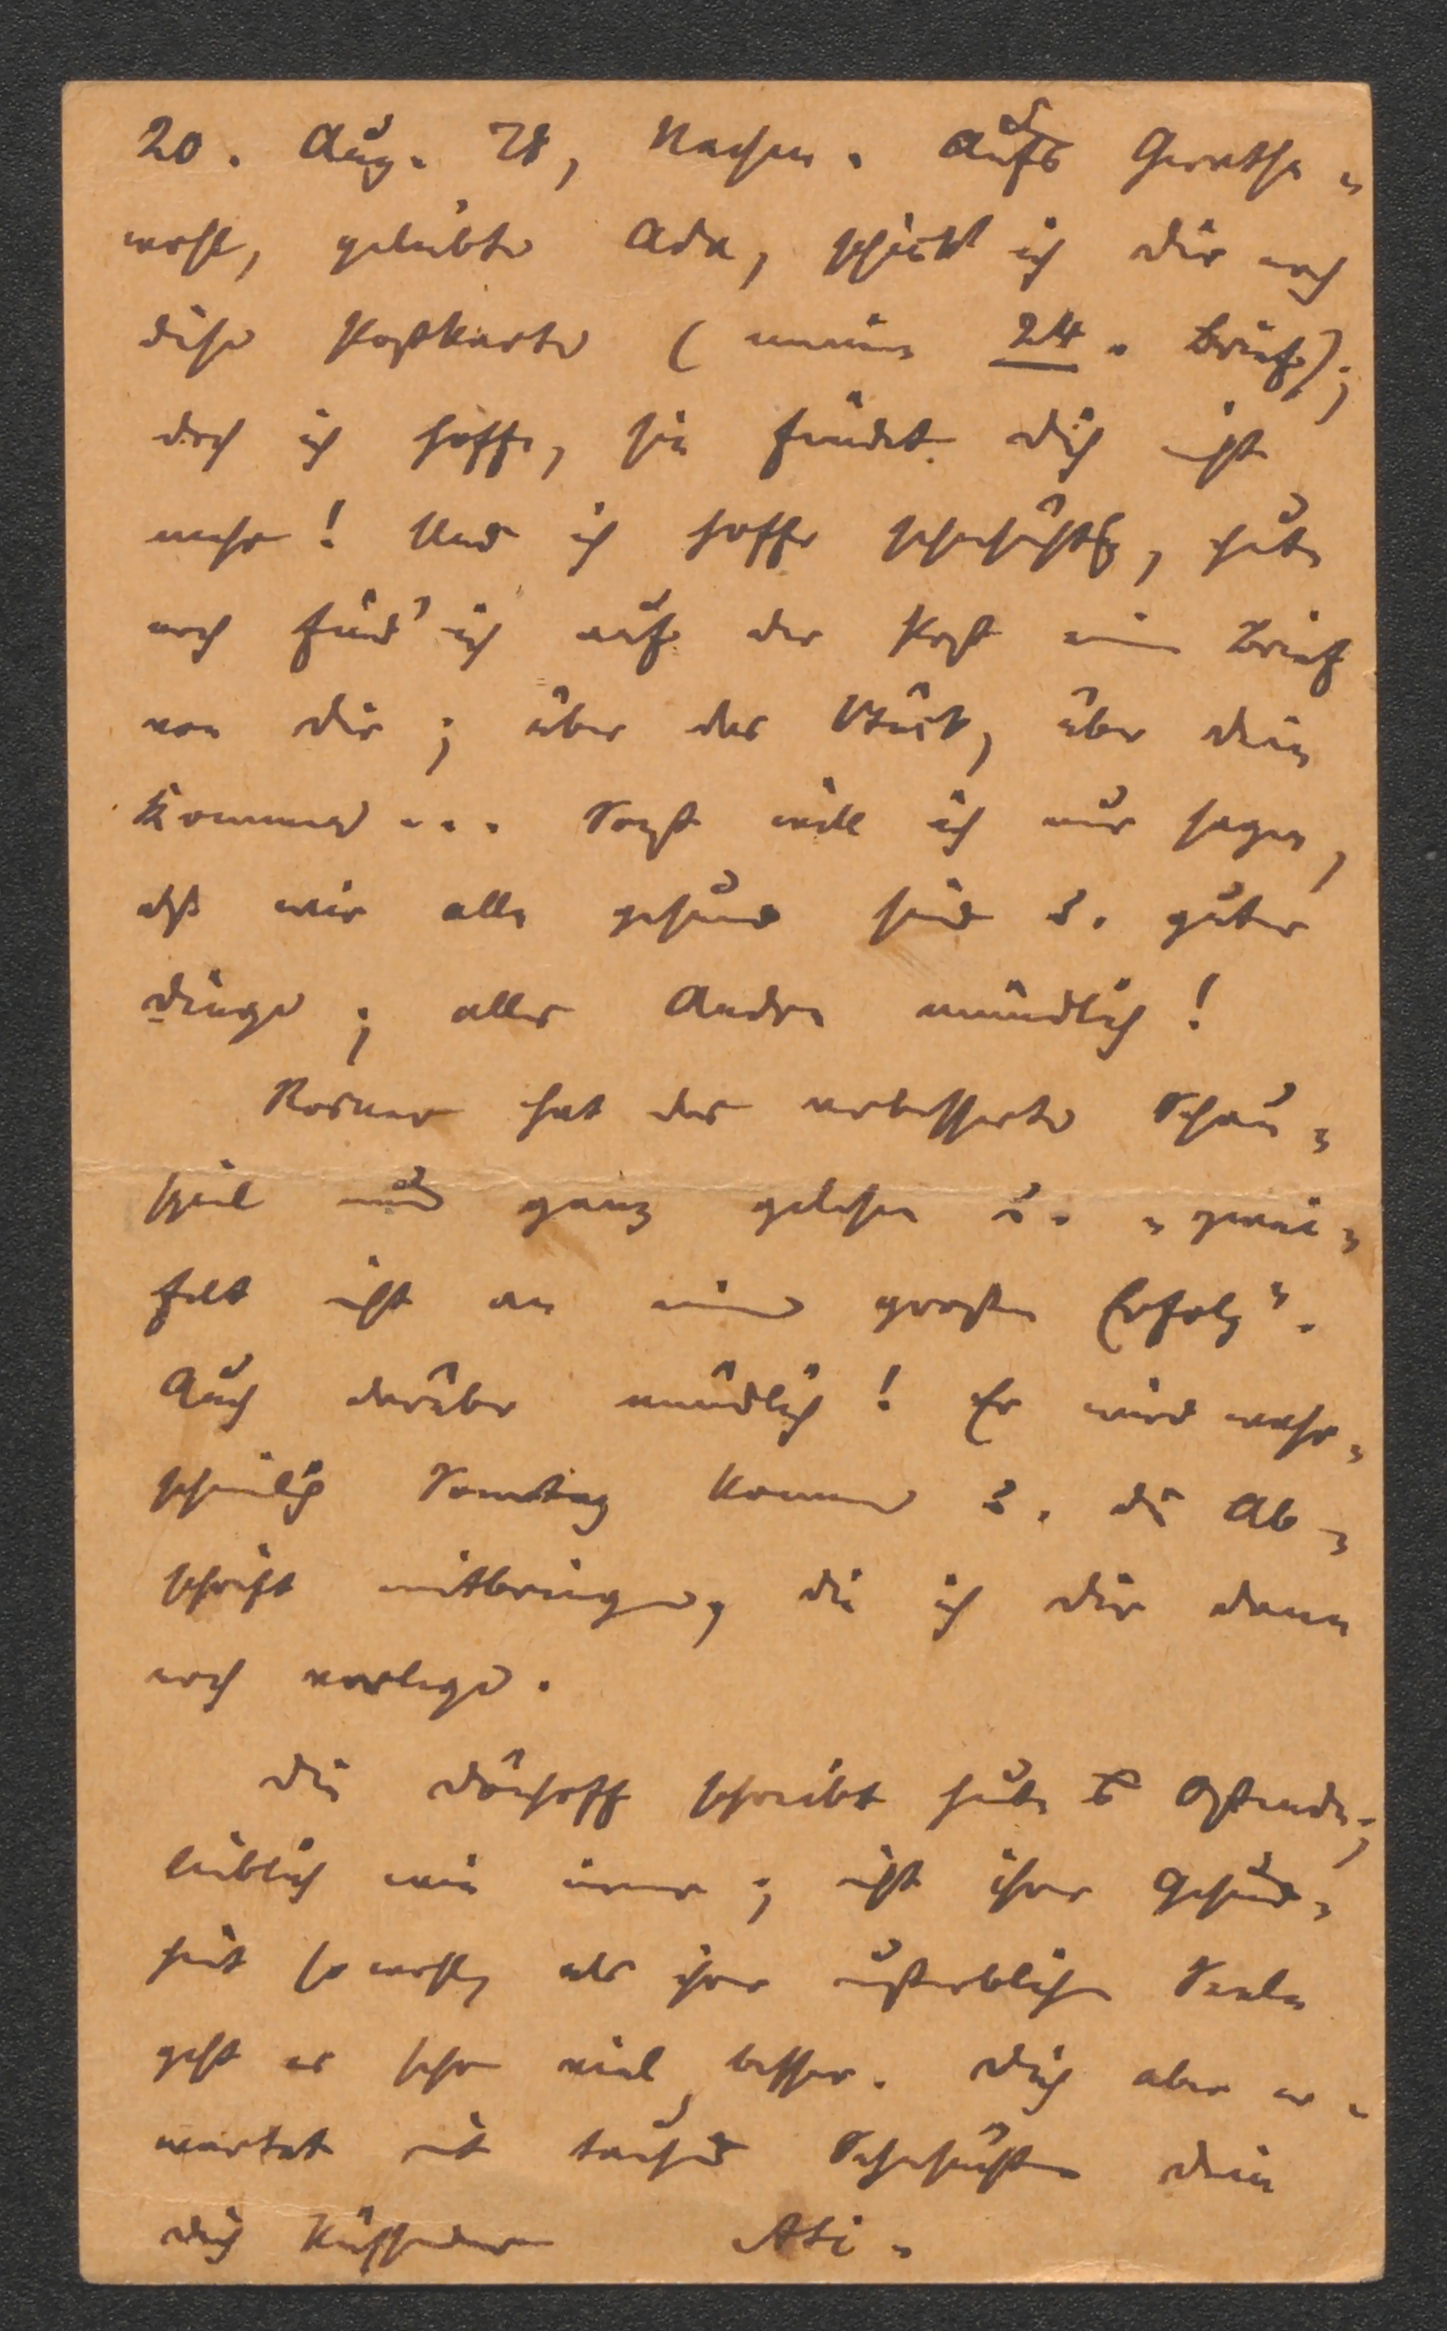 20. Aug. 78, Aachen. Aufs Gerathe-
wohl, geliebte Ada, schick' ich dir noch
diese Postkarte (meinen 24. Brief);
doch ich hoffe, sie findet dich nicht
mehr! Und ich hoffe sehnsüchtig, heute
noch find' ich auf der Post einen Brief
von dir; über das Stück, über dein
Kommen ... Sonst will ich nur sagen,
daß wir alle gesund sind u. guter
Dinge; alles Andre mündlich!
hat das verbesserte Schau-
spiel nun ganz gelesen u. „zwei-
felt nicht an einem großen Erfolg".
Auch darüber mündlich! Er wird wahr-
scheinlich Sonntag kommen u. die Ab-
schrift mitbringen, die ich dir dann
noch vorlege.
Die Dönhoff schreibt heute aus Ostende;
lieblich wie immer; nicht ihrer Gesund-
heit sowohl, als ihrer unsterblichen Seele
geht es sehr viel besser. Dich aber er-
wartet mit tausend Sehnsuchten dein
dich küssender Adi.